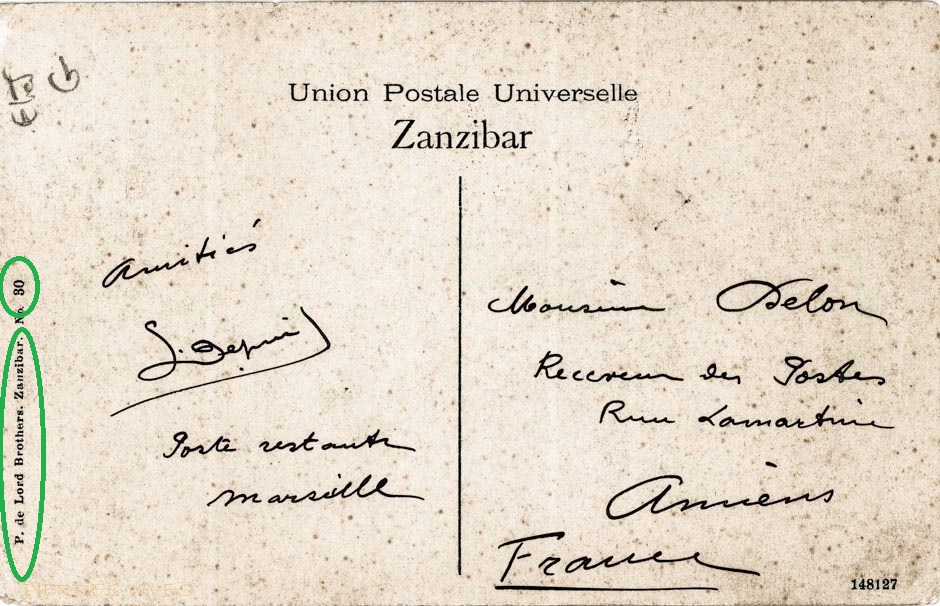 Union Postale Universelle
Zanzibar
Amitiés
Poste restante
Marseille
Monsieur Delon
Receveur des Postes
Rue Lamartine
Amiens
France
P. de Lord Brothers. Zanzibar. No. 80
148127